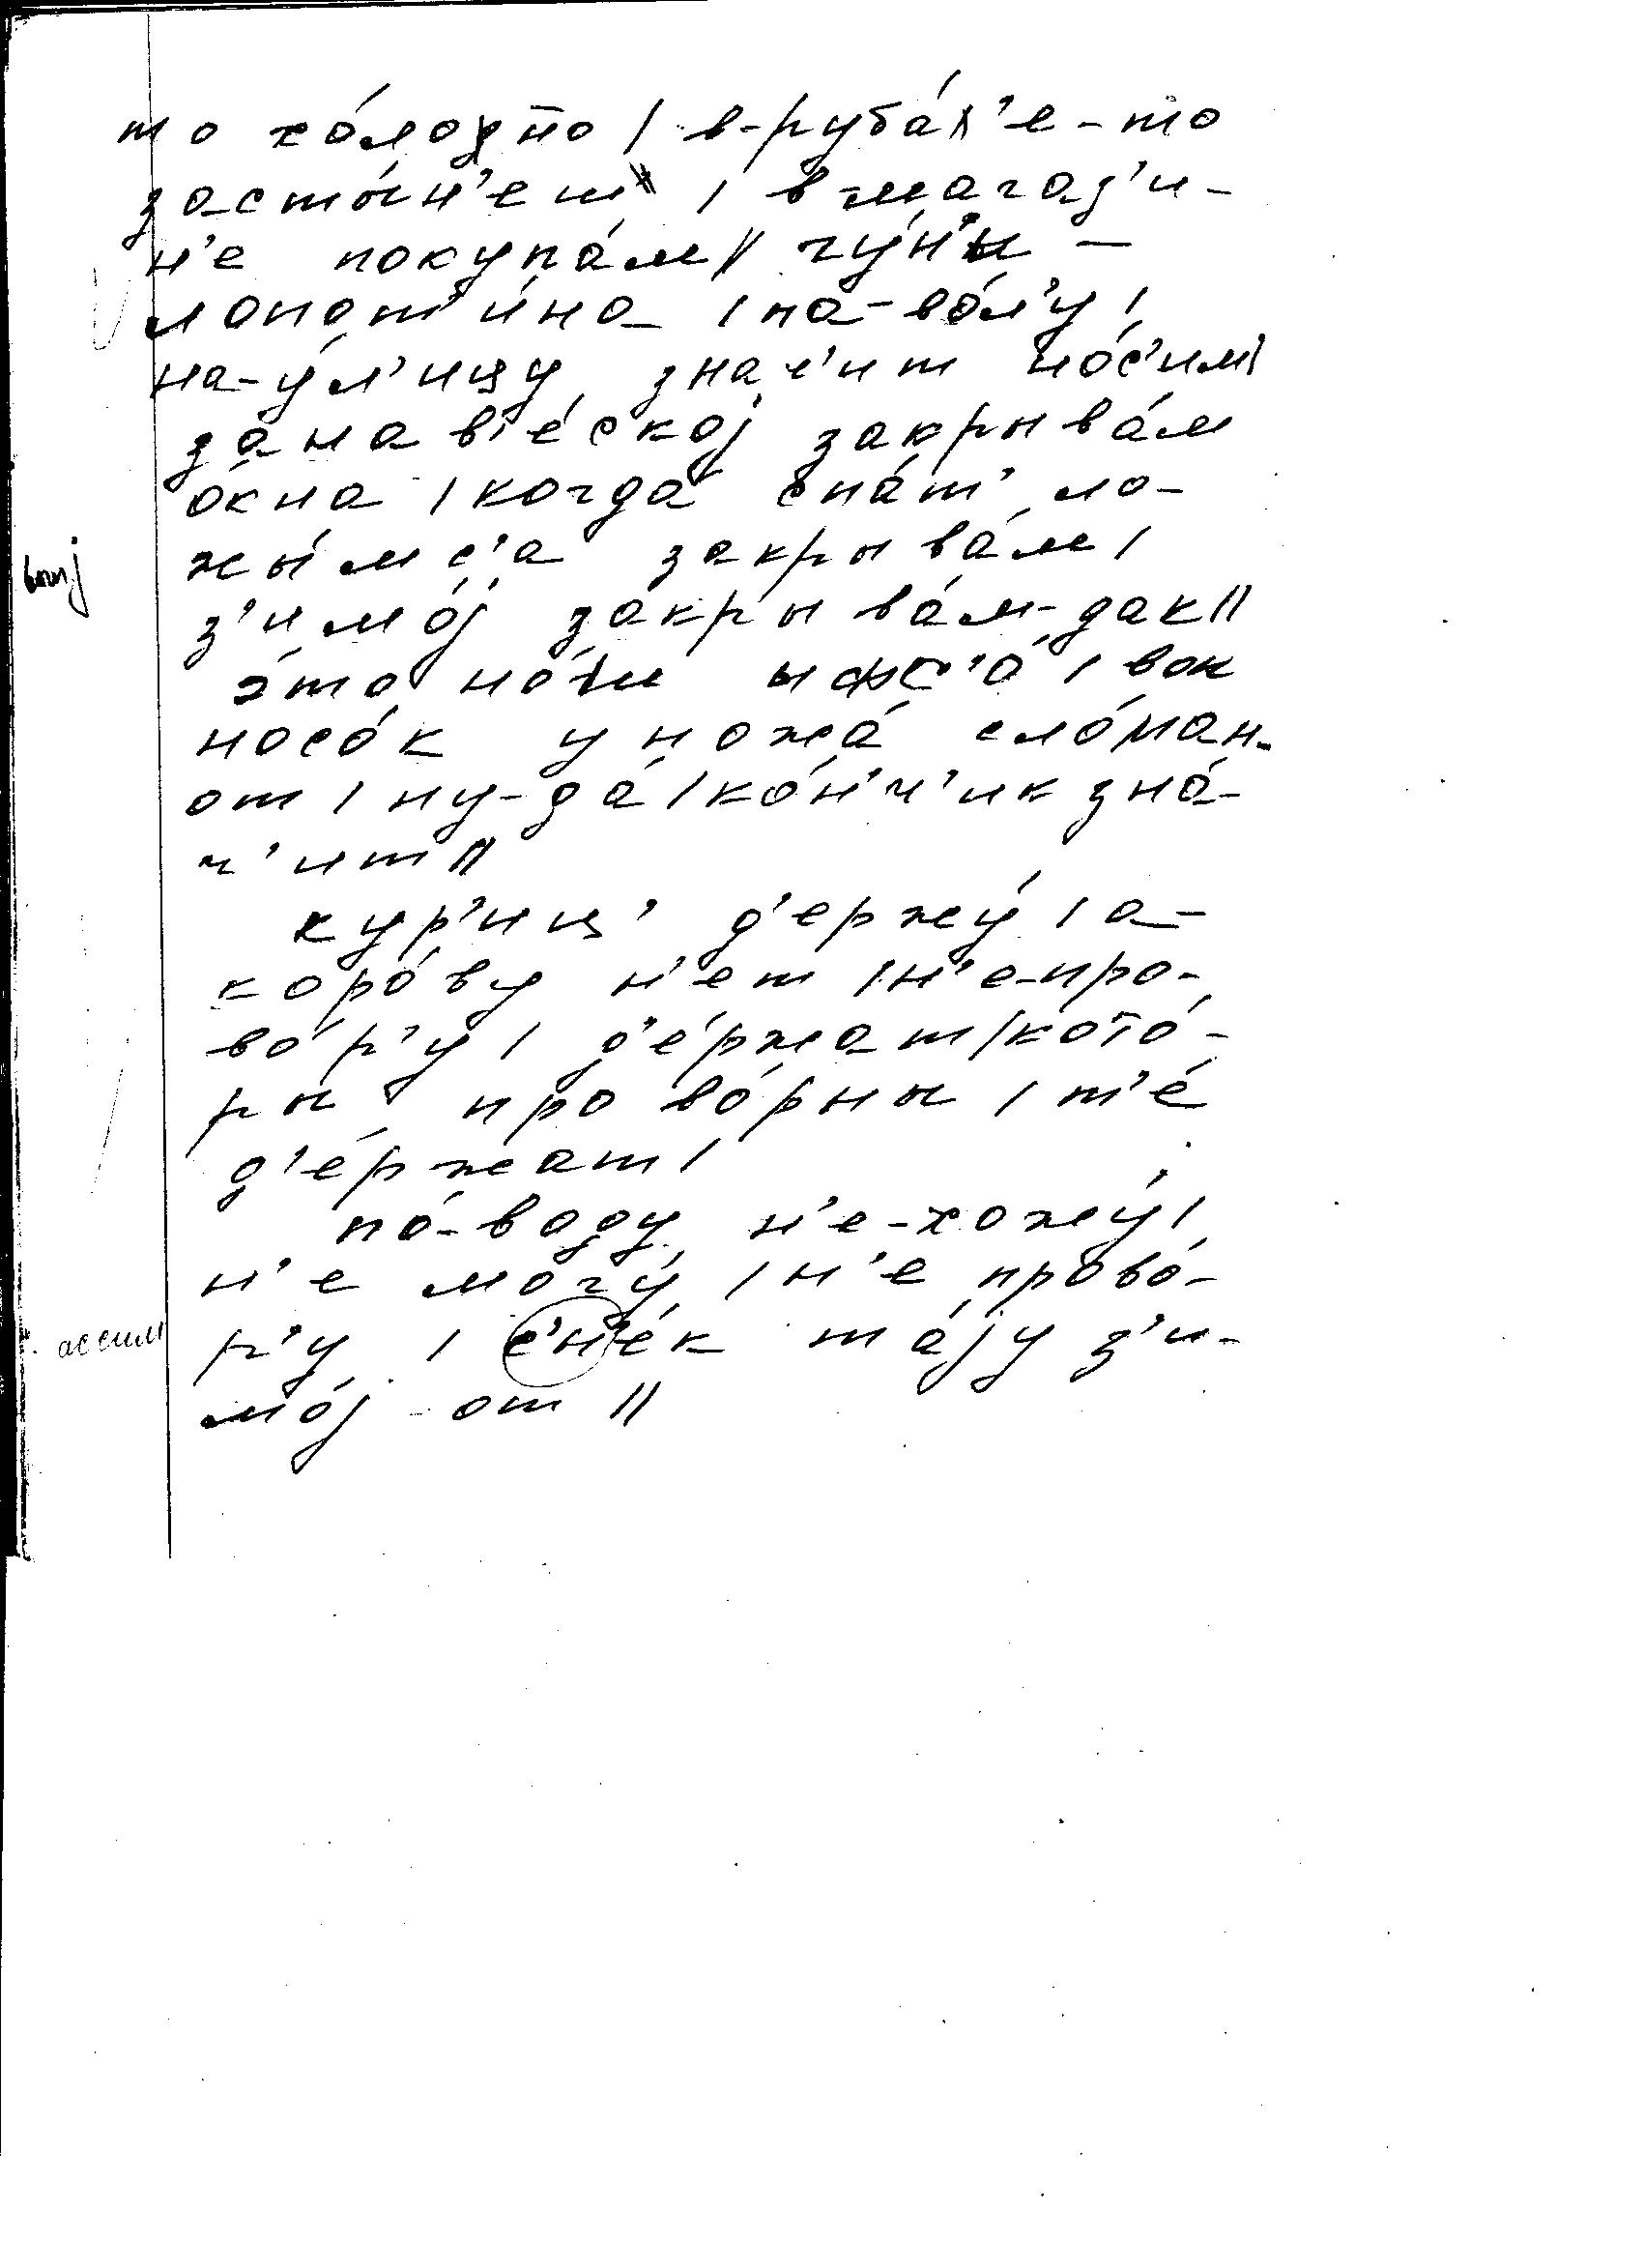 то хо́лодно / в-руба́х'е-то
засты́н'ет / в-магаз'и-
н'е покупа́м // гу́н'и —
лопот'и́на / на-во́л'у /
на-у́л'ицу знач'ит но́с'им /
занав'е́ской закрыва́м
о́кна / когда́ спа́т' ло-
жы́мс'а закрыва́м /
з'имо́j закрыва́м-дак //
э́то но́ж и фс'о́ / вон
носо́к у ножа́ сло́ман-
от / ну-да́ / ко́н'ч'ик зна́-
ч'ит //
ку́р'иц' д'ержу́ / а-
коро́ву н'ет / н'е-про-
во́р'у / д'е́ржат / кото́-
ры прово́рны / т'е́
д'е́ржат /
по́-воду н'е-хожу́ /
н'е могу́ / н'е прово́-
р'у / с'н'е́к та́jу з'и-
мо́j-от //
ассим